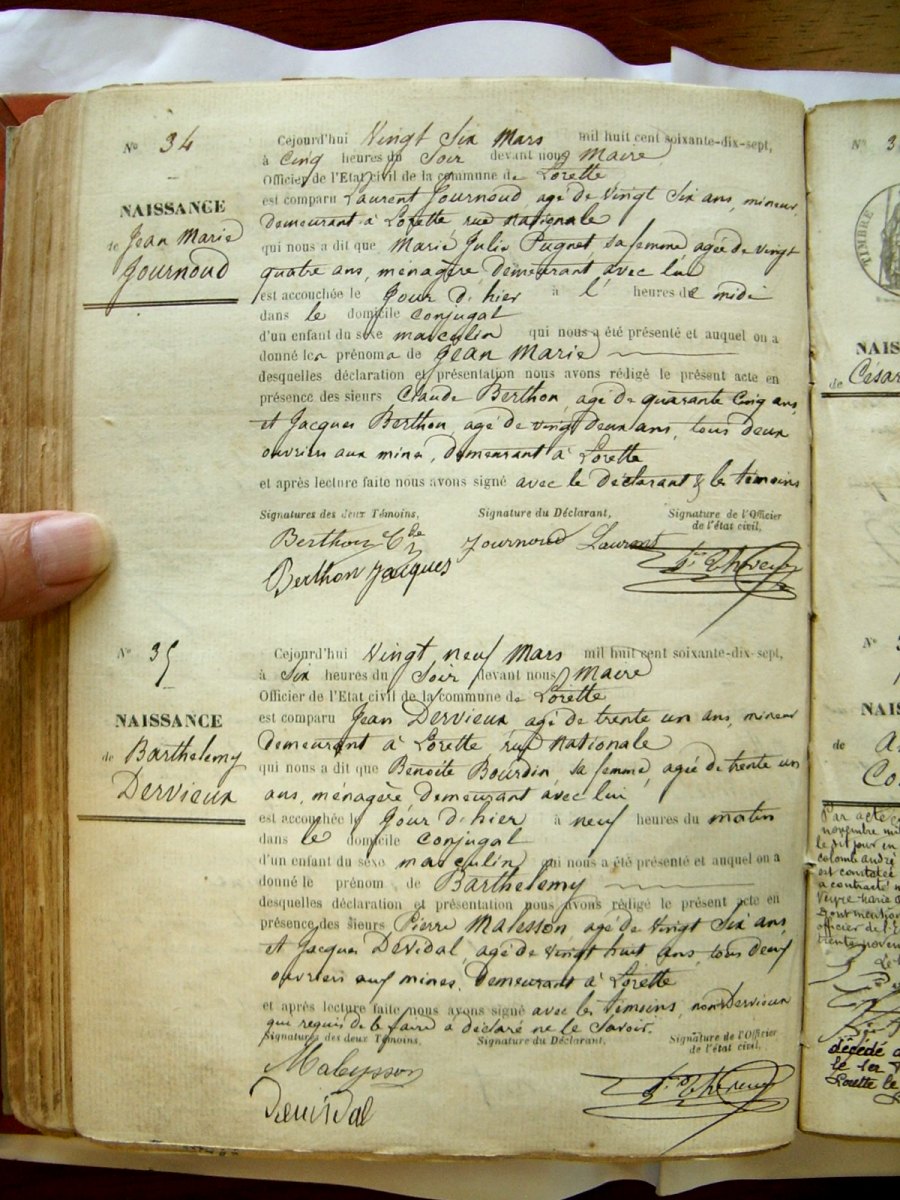 N° 34
NAISSANCE
de Jean Marie
Journoud
Cejourd'hui Vingt Six Mars mil huit cent soixante-dix-sept,
à Cinq heures du Soir devant nous Maire
Officier de l'Etat civil de la commune de Lorette
est comparu Laurent Journoud, agé de Vingt Six ans, mineur,
demeurant à Lorette, rue Nationale
qui nous a dit que Marie Julie Pugnet sa femme agée de vingt
quatre ans, ménagère demeurant avec lui
est accouchée le Jour d'hier à l' heures de midi
dans le domicile conjugal
d'un enfant du sexe masculin qui nous a été présenté et auquel on a
donné les prénoms de Jean Marie
desquelles déclaration et présentation nous avons rédigé le présent acte en
présence des sieurs Claude Berthon, agé de quarante Cinq ans,
et Jacques Berthon, agé de vingt deux ans, tous deux
ouvriers aux mines, demeurant à Lorette
et après lecture faite nous avons signé avec le déclarant & les témoins
Signatures des deux Témoins, Signature du Déclarant, Signature de l'Officier
de l'état civil,
Berthon Cde Journoud Laurent
Berthon Jacques
N° 35
NAISSANCE
de Barthelemy
Dervieux
Cejourd'hui Vingt neuf Mars mil huit cent soixante-dix-sept,
à Six heures du Soir devant nous Maire
Officier de l'Etat civil de la commune de Lorette
est comparu Jean Dervieux agé de trente un ans, mineur
demeurant à Lorette rue Nationale
qui nous a dit que Benoîte Bourdin, sa femme, agée de trente un
ans, ménagère demeurant avec lui
est accouchée le Jour d'hier à neuf heures du matin
dans le domicile conjugal
d'un enfant du sexe masculin qui nous a été présenté et auquel on a
donné le prénom de Barthelemy
desquelles déclaration et présentation nous avons rédigé le présent acte en
présence des sieurs Pierre Malesson, agé de Vingt Six ans,
et Jacques Devidal, agé de vingt huit ans, tous deux
ouvriers aux mines, demeurant à Lorette
et après lecture faite nous avons signé avec les témoins, non Dervieux
que requis de le faire a déclaré ne le Savoir.
Signatures des deux Témoins, Signature du Déclarant, Signature de l'Officier
de l'état civil,
Maleysson
Devidal
N° 3
TIMBRE
NAIS
de César
N°
NAIS
de
Par acte
novembre
le dit jour en
colomb andré
est constatée
a contracté
Veyre marie
Dont mention
officier de l'E
trente novem
décédé
le 1er
Lorette le